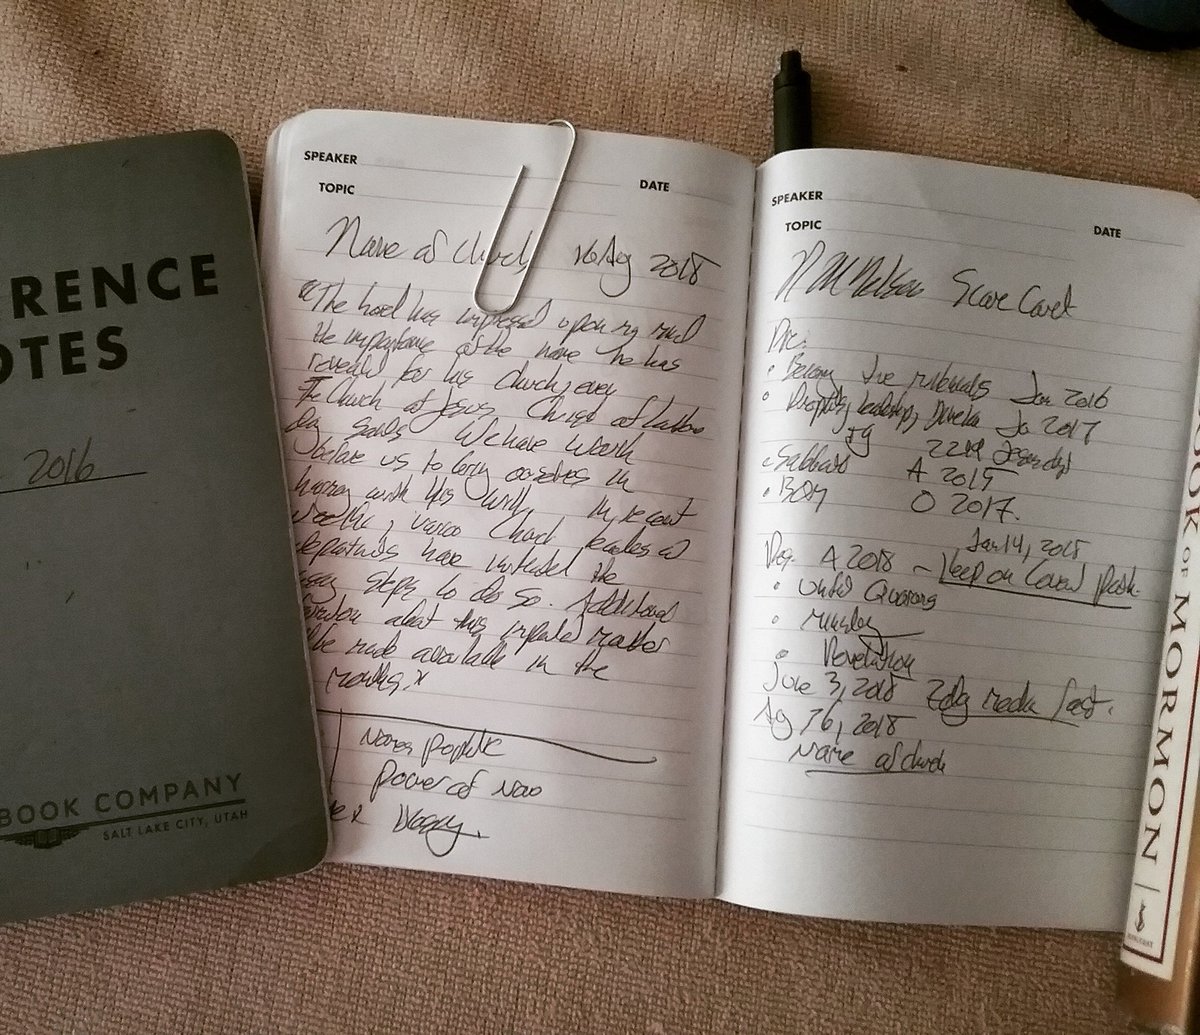 RENCE
OTES
2016
BOOK COMPANY
SALT LAKE CITY, UTAH
SPEAKER
TOPIC
DATE
Name of church 16 Ag 2018
"The Lord has impressed upon my mind
the importance of the name he has
revealed for his Church, even
The Church of Jesus Christ of Latter
day Saints. We have work
before us to bring ourselves in
harmony with His will. In recent
various Church leaders and
departments have initiated the
steps to do so. Additional
about this important matter
be made available in the
months."
Power of
SPEAKER
TOPIC
DATE
R M Nelson Score Card
Pre:
• Becoming True millennials Jan 2016
• Prophets, leadership, Ja 2017
• Sabbath A 2015
• BOM O 2017.
Jan 14, 2018
A 2018 - Keep on Coven path.
• United Quorums
•
• Revelation
June 3, 2018 7 day media fast.
Ag 16, 2018
Name of church
BOOK OF MORMON